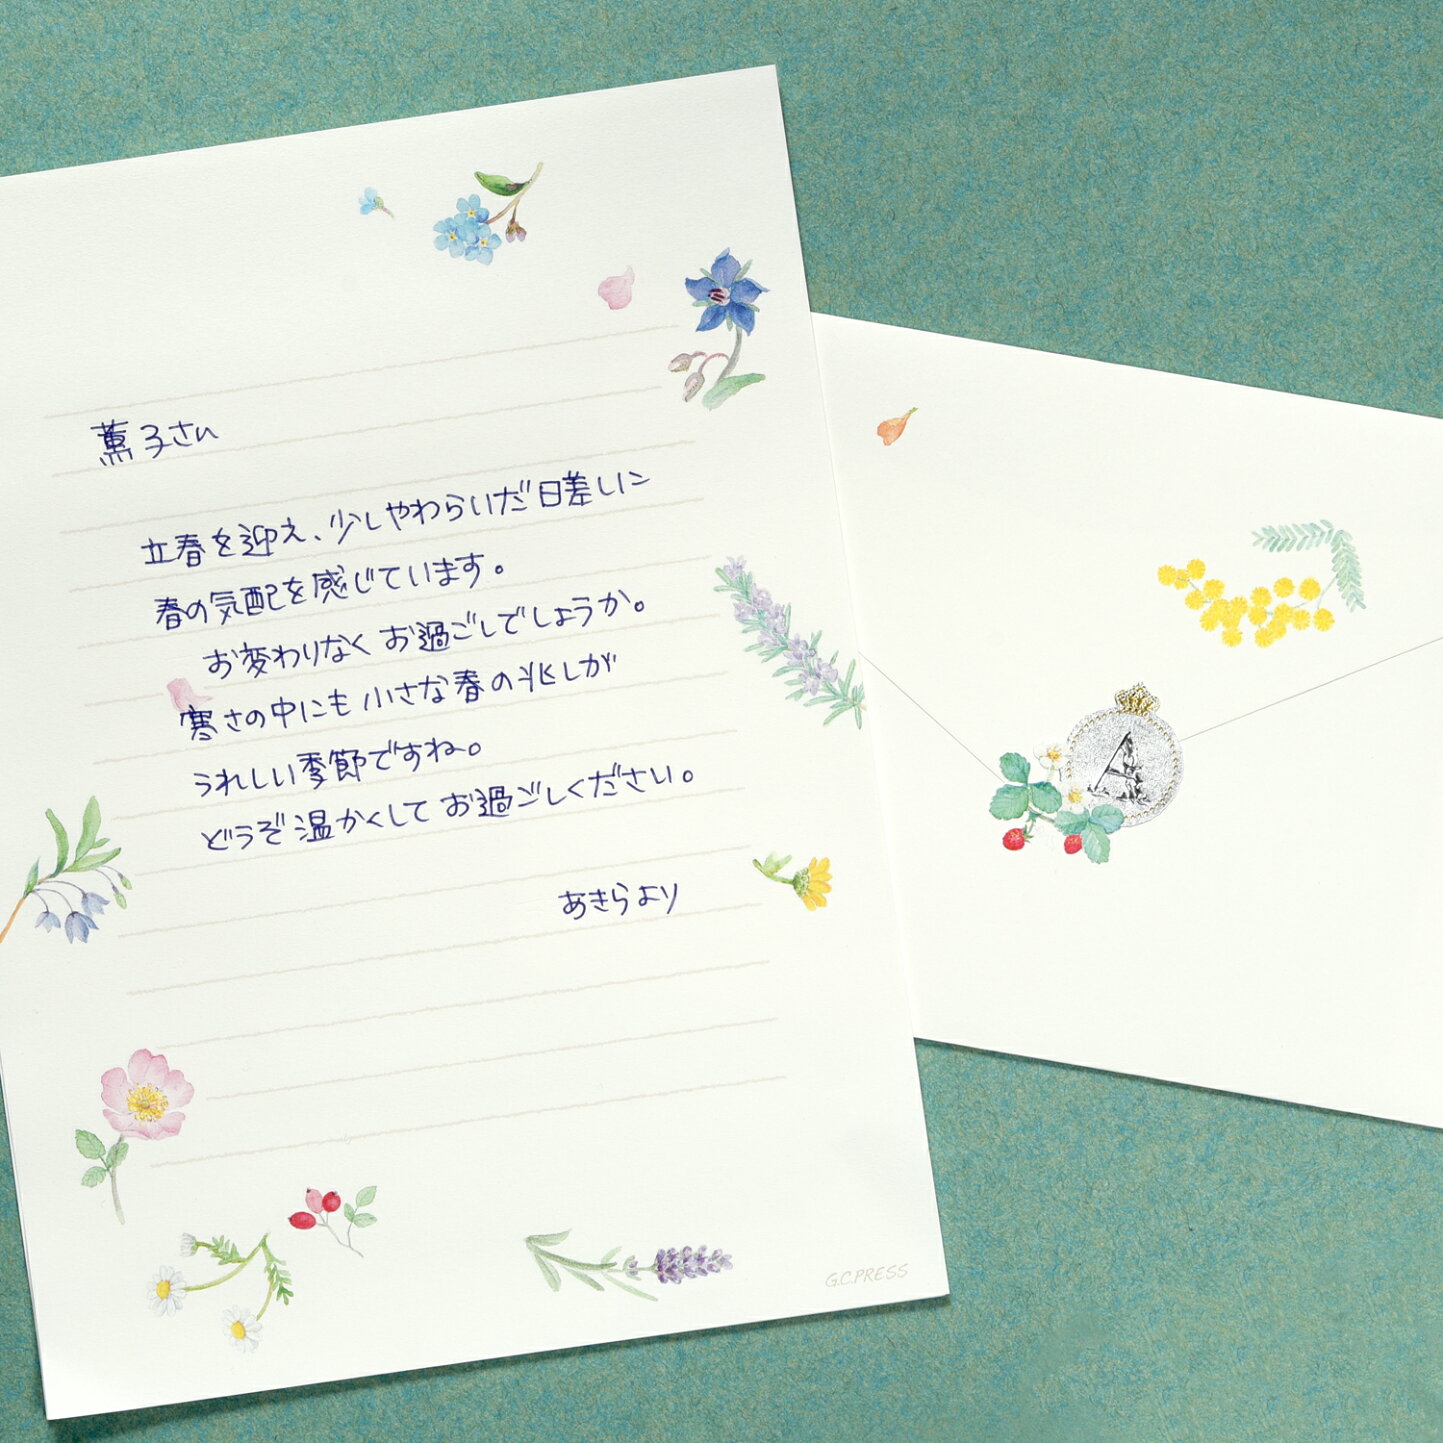 薫子さん
立春を迎え、少しやわらいだ日差しに
春の気配を感じています。
お変わりなくお過ごしでしょうか。
寒さの中にも小さな春の兆しが
うれしい季節ですね。
どうぞ温かくしてお過ごしください。
あきらより
G.C.PRESS
A